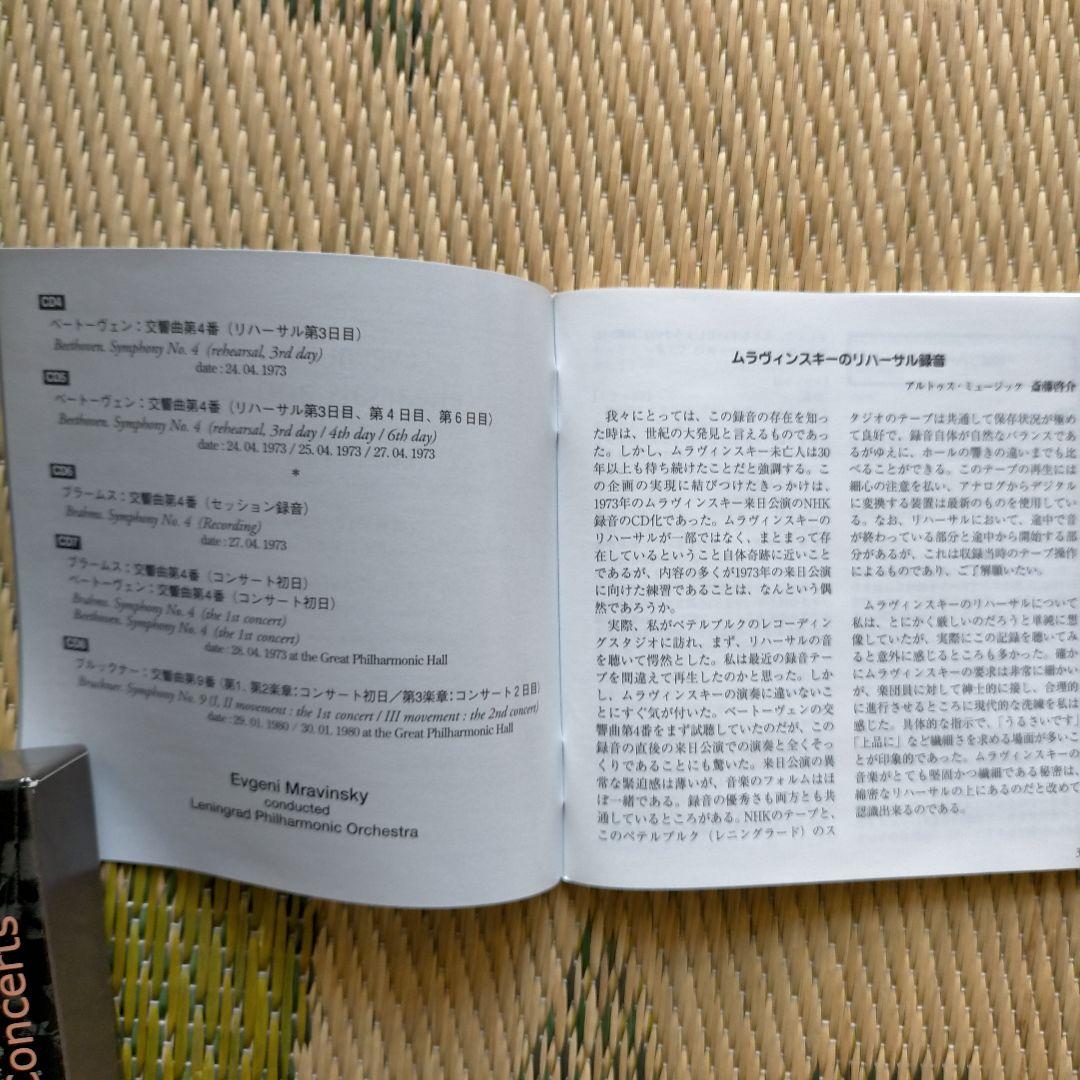 CD4
ベートーヴェン：交響曲第4番（リハーサル第3日目）
Beethoven. Symphony No. 4 (rehearsal, 3rd day)
date : 24. 04. 1973
CD5
ベートーヴェン：交響曲第4番（リハーサル第3日目、第４日目、第６日目）
Beethoven. Symphony No. 4 (rehearsal, 3rd day / 4th day / 6th day)
date : 24. 04. 1973 / 25. 04. 1973 / 27. 04. 1973
*
CD6
ブラームス：交響曲第4番（セッション録音）
Brahms. Symphony No. 4 (Recording)
date : 27. 04. 1973
CD7
ブラームス：交響曲第4番（コンサート初日）
ベートーヴェン：交響曲第4番（コンサート初日）
Brahms. Symphony No. 4 (the 1st concert)
Beethoven. Symphony No. 4 (the 1st concert)
date : 28. 04. 1973 at the Great Philharmonic Hall
CD8
ブルックナー：交響曲第9番（第1、第2楽章：コンサート初日／第3楽章：コンサート２日目）
Bruckner. Symphony No. 9 (I, II movement : the 1st concert / III movement : the 2nd concert)
date : 29. 01. 1980 / 30. 01. 1980 at the Great Philharmonic Hall
Evgeni Mravinsky
conducted
Leningrad Philharmonic Orchestra
ムラヴィンスキーのリハーサル録音
アルトゥス・ミュージック 斎藤啓介
我々にとっては、この録音の存在を知っ
た時は、世紀の大発見と言えるものであっ
た。しかし、ムラヴィンスキー未亡人は30
年以上も待ち続けたことだと強調する。こ
の企画の実現に結びつけたきっかけは、
1973年のムラヴィンスキー来日公演のNHK
録音のCD化であった。ムラヴィンスキーの
リハーサルが一部ではなく、まとまって存
在しているということ自体奇跡に近いこと
であるが、内容の多くが1973年の来日公演
に向けた練習であることは、なんという偶
然であろうか。
実際、私がペテルブルクのレコーディン
グスタジオに訪れ、まず、リハーサルの音
を聴いて愕然とした。私は最近の録音テー
プを間違えて再生したのかと思った。しか
し、ムラヴィンスキーの演奏に違いないこ
とにすぐ気が付いた。ベートーヴェンの交
響曲第4番をまず試聴していたのだが、この
録音の直後の来日公演での演奏と全くそっ
くりであることにも驚いた。来日公演の異
常な緊迫感は薄いが、音楽のフォルムはほ
ぼ一緒である。録音の優秀さも両方とも共
通しているところがある。NHKのテープと、
このペテルブルク（レニングラード）のス
タジオのテープは共通して保存状況が極め
て良好で、録音自体が自然なバランスであ
るがゆえに、ホールの響きの違いまでも比
べることができる。このテープの再生には
細心の注意を払い、アナログからデジタル
に変換する装置は最新のものを使用してい
る。なお、リハーサルにおいて、途中で音
が終わっている部分と途中から開始する部
分があるが、これは収録当時のテープ操作
によるものであり、ご了解願いたい。
ムラヴィンスキーのリハーサルについて
私は、とにかく厳しいのだろうと単純に想
像していたが、実際にこの記録を聴いてみ
ると意外に感じるところも多かった。確か
にムラヴィンスキーの要求は非常に細かい
が、楽団員に対して紳士的に接し、合理的
に進行させるところに現代的な洗練を私は
感じた。具体的な指示で、「うるさいです」
「上品に」など繊細さを求める場面が多いこ
とが印象的であった。ムラヴィンスキーの
音楽がとても堅固かつ繊細である秘密は、
綿密なリハーサルの上にあるのだと改めて
認識出来るのである。
concerts